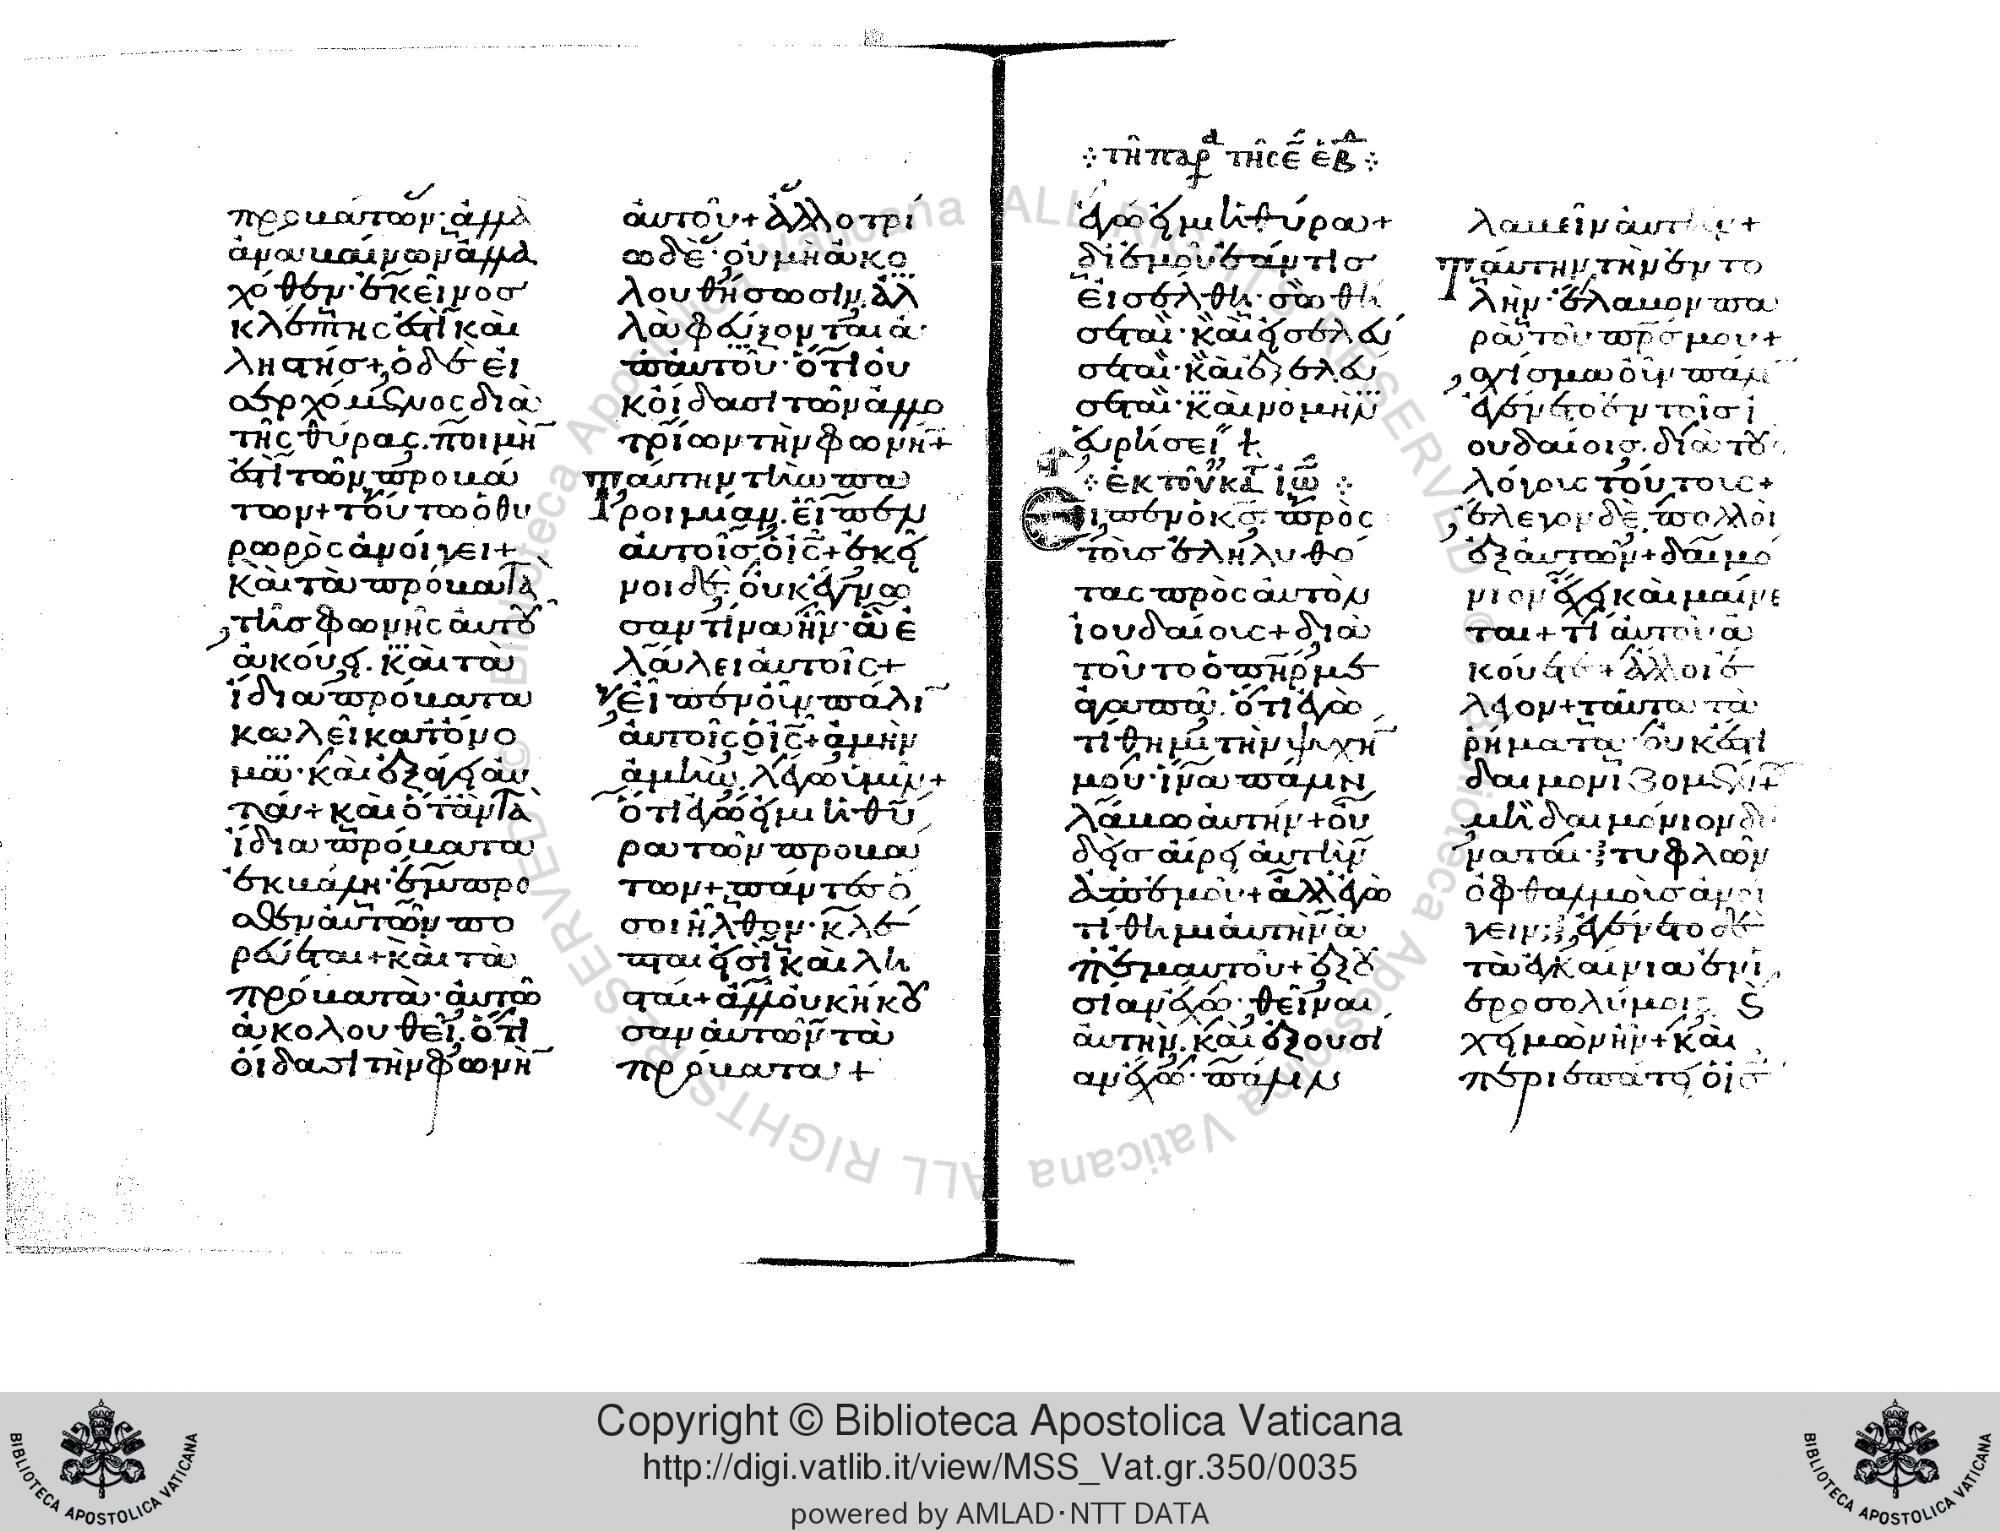 προβάτων· ἀλλὰ
ἀναβαίνων ἀλλα
χόθεν· ἐκεῖνος
κλέπτης ἐστὶ καὶ
ληστής+ ὁ δὲ εἰ
σερχόμενος διὰ
τῆς θύρας. ποιμὴν
ἐστὶ τῶν προβά
των+ τούτω ὁ θυ
ρωρὸς ἀνοίγει+
καὶ τὰ πρόβατα
τῆς φωνῆς αὐτοῦ
ἀκούει. καὶ τὰ
ἴδια πρόβατα
καλεῖ κατ' όνο
μα· καὶ ἐξάγει αὐ
τά+ καὶ ὅταν τὰ
ἴδια πρόβατα
ἐκβάλη· ἔμπρο
σθεν αὐτῶν πο
ρεύεται+ καὶ τὰ
πρόβατα· αὐτῶ
ἀκολουθεῖ. ὅτι
οἴδασι τὴν φωνὴν
αὐτοῦ+ ἀλλοτρί
ω δὲ· οὐ μὴ ἀκο
λουθήσωσιν. ἀλ
λὰ φεύξονται ἀ
π' αὐτοῦ· ὅτι οὐ
κ οἴδασι τῶν ἀλλο
τρίων τὴν φωνήν+
Ταύτην τὴν πα
ροιμίαν. εἶπεν
αὐτοῖς ὁ ις+ ἐκεῖ
νοι δὲ· οὐκ ἔγνω
σαν τίνα ἦν· ἃ ἐ
λάλει αὐτοῖς+
εἶπεν οὖν πάλιν
αὐτοῖς ὁ ις+ ἀμὴν
ἀμὴν. λέγω ὑμῖν+
ὅτι ἐγώ εἰμι ἡ θύ
ρα τῶν προβά
των+ πάντες ὅ
σοι ἦλθον· κλέ
πται εἰσὶ καὶ λη
σταί+ ἀλλ' οὐκ ἤκου
σαν αὐτῶν τὰ
πρόβατα+
τῆ παρ τῆς ε εβδ
ἐγώ εἰμι ἡ θύρα+
δι' ἐμοῦ ἐάν τις
εἰσέλθη· σωθή
σεται· καὶ εἰσελεύ
σεται· καὶ ἐξελεύ
σεται· καὶ νομὴν
εὑρήσει+
ἐκ τοῦ κατ ιω
Εἶπεν ὁ κς. πρὸς
τοὺς ἐληλυθό
τας πρὸς αὐτὸν
ἰουδαίους+ διὰ
τοῦτο ὁ πηρ με
ἀγαπᾶ. ὅτι ἐγὼ
τίθημι τὴν ψυχήν
μου· ἵνα πάλιν
λάβω αὐτήν+ οὐ
δεὶς αἴρει αὐτὴν
ἀπ' ἐμοῦ+ ἀλλ' ἐγὼ
τίθημι αὐτὴν ἀ
π' ἐμαυτοῦ+ ἐξου
σίαν ἔχω· θεῖναι
αὐτὴν. καὶ ἐξουσί
αν ἔχω· πάλιν
λαβεῖν αὐτήν+
Ταύτην τὴν ἐντο
λὴν· ἔλαβον πα
ρὰ τοῦ πρσ μου+
σχίσμα οὖν πάλιν
ἐγένετο ἐν τοῖς ἰ
ουδαίοις. διὰ τοὺς
λόγους τούτους+
ἔλεγον δὲ πολλοὶ
ἐξ αὐτῶν+ δαιμό
νιον ἔχει καὶ μαίνε
ται+ τί αὐτοῦ ἀ
κούετε+ ἄλλοι ἔ
λεγον+ ταῦτα τὰ
ῥήματα· οὐκ ἔστι
δαιμονιζομένου+
μὴ δαιμόνιον δύ
ναται· τυφλῶν
ὀφθαλμοὺς ἀνοί
γειν; ἐγένετο δὲ
τὰ ἐγκαίνια ἐν ἱ
εροσολύμοις. καὶ
χειμὼν ἦν+ καὶ
περιεπάτει ὁ ις
Copyright © Biblioteca Apostolica Vaticana
http://digi.vatlib.it/view/MSS_Vat.gr.350/0035
powered by AMLAD·NTT DATA
BIBLIOTECA APOSTOLICA VATICANA
BIBLIOTECA APOSTOLICA VATICANA
© Biblioteca Apostolica Vaticana ALL RIGHTS RESERVED © Biblioteca Apostolica Vaticana ALL RIGHTS RESERVED